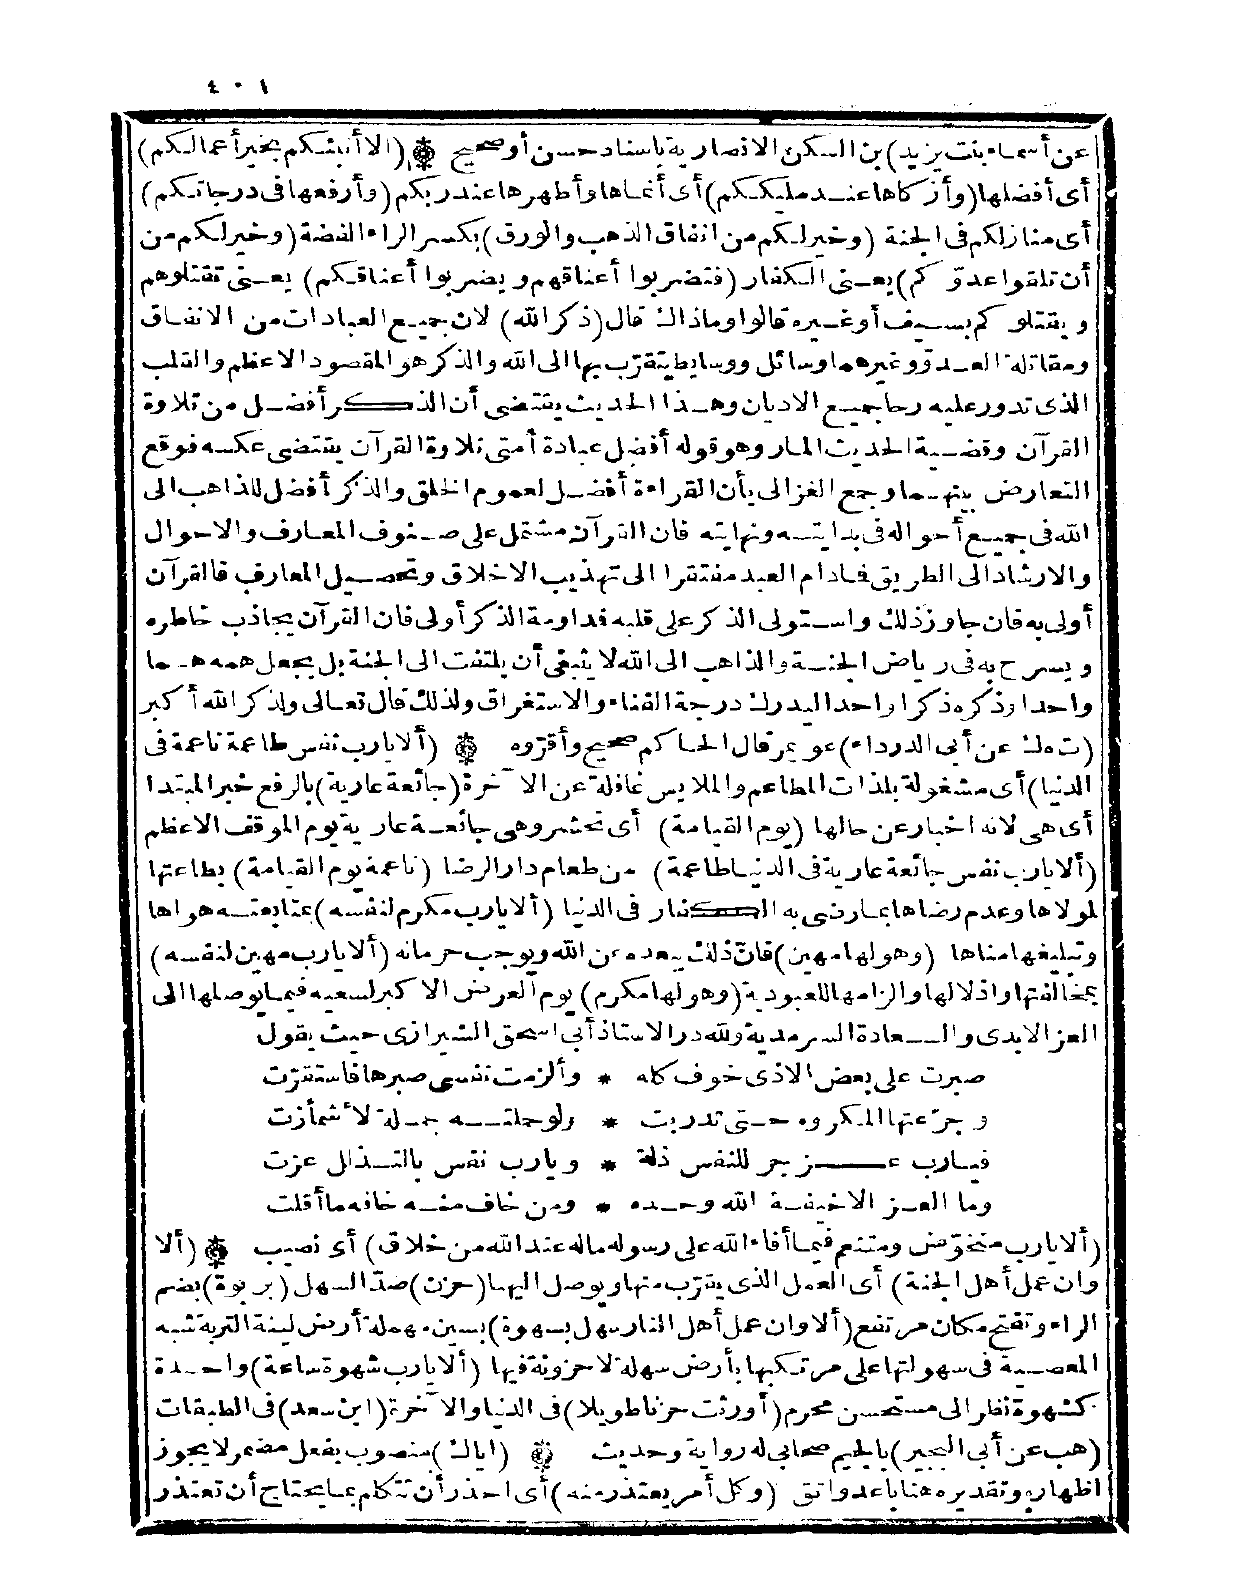 ٤٠١
عن أسماء بنت يزيد) بن السكن الانصارية باسناد حسن أو صحيح ۞ (الا أنبئكم بخير أعمالكم)
أى أفضلها (وأزكاها عند مليككم) أى أنماها وأطهرها عند ربكم (وأرفعها فى درجاتكم)
أى منازلكم فى الجنة (وخير لكم من انفاق الذهب والورق) بكسر الراء الفضة (وخير لكم من
أن تلقوا عدوّكم) يعنى الكفار (فتضربوا أعناقهم ويضربوا أعناقكم) يعنى تقتلوهم
ويقتلوكم بسيف أو غيره قالوا وماذاك قال (ذكر الله) لان جميع العبادات من الانفاق
ومقاتلة العدوّ وغيرهما وسائل ووسايط يتقرّب بها الى الله والذكر هو المقصود الاعظم والقلب
الذى تدور عليه رحا جميع الاديان وهذا الحديث يقتضى أن الذكر أفضل من تلاوة
القرآن وقضية الحديث المار وهو قوله أفضل عبادة أمتى تلاوة القرآن يقتضى عكسه فوقع
التعارض بينهما وجمع الغزالى بأن القراءة أفضل لعموم الخلق والذكر أفضل للذاهب الى
الله فى جميع أحواله فى بدايته ونهايته فان القرآن مشتمل على صنوف المعارف والاحوال
والارشاد الى الطريق فادام العبد مفتقرا الى تهذيب الاخلاق وتحصيل المعارف فالقرآن
أولى به فان جاوز ذلك واستولى الذكر على قلبه فداومة الذكر أولى فان القرآن يجاذب خاطره
ويسرح به فى رياض الجنة والذاهب الى الله لا ينبغى أن يلتفت الى الجنة بل يجعل همه هما
واحدا وذكره ذكرا واحدا ليدرك درجة الفناء والاستغراق ولذلك قال تعالى ولذكر الله أكبر
(ت ه ك عن أبى الدرداء) عويمر قال الحاكم صحيح وأقرّوه ۞ (ألا يارب نفس طاعمة ناعمة فى
الدنيا) أى مشغولة بلذات المطاعم والملابس غافلة عن الآخرة (جائعة عارية) بالرفع خبر المبتدا
أى هى لانه اخبار عن حالها (يوم القيامة) أى تحشر وهى جائعة عارية يوم الموقف الاعظم
(ألا يارب نفس جائعة عارية فى الدنيا طاعمة) من طعام دار الرضا (ناعمة يوم القيامة) بطاعتها
لمولاها وعدم رضاها بما رضى به الكفار فى الدنيا (ألا يارب مكرم لنفسه) بمتابعته هواها
وتبليغها مناها (وهو لها مهين) فانّ ذلك يبعده عن الله ويوجب حرمانه (ألا يارب مهين لنفسه)
بمخالفتها واذلالها والزامها للعبودية (وهو لها مكرم) يوم العرض الاكبر لسعيه فيما يوصلها الى
العز الابدى والسعادة السرمدية ولله در الاستاذ أبى اسحق الشيرازى حيث يقول
صبرت على بعض الاذى خوف كله * وألزمت نفسى صبرها فاستقرّت
وجرّعتها المكروه حتى تدربت * ولو حملته جملة لاشمأزت
فيارب عز جر للنفس ذلة * ويارب نفس بالتذال عزت
وما العز الا خيفة الله وحده * ومن خاف منه خافه ما أقلت
(ألا يارب متخوّض ومتنعم فيما أفاء الله على رسوله ماله عند الله من خلاق) أى نصيب ۞ (ألا
وان عمل أهل الجنة) أى العمل الذى يقرّب منها ويوصل اليها (حزن) ضدّ السهل (بربوة) بضم
الراء وتفتح مكان مرتفع (ألا وان عمل أهل النار سهل بسهوة) بسين مهملة أرض لينة التربة شبه
المعصية فى سهولتها على مرتكبها بأرض سهلة لا حزونة فيها (ألا يارب شهوة ساعة) واحدة
كشهوة نظر الى مستحسن محرم (أورثت حزنا طويلا) فى الدنيا والآخرة (ابن سعد) فى الطبقات
(هب عن أبى البجير) بالجيم صحابى له رواية وحديث ۞ (اياك) منصوب بفعل مضمر لا يجوز
اظهاره وتقديره هنا باعد واتق (وكل أمر يعتذر منه) أى احذر أن تتكلم بما يحتاج أن تعتذر